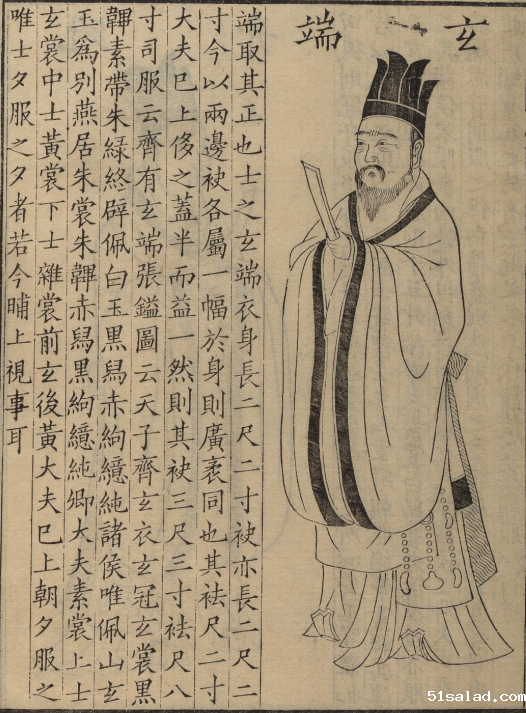 玄端
端取其正也士之玄端衣身長二尺二寸袂亦長二尺二
寸今以兩邊袂各屬一幅於身則廣袤同也其袪尺二寸
大夫巳上侈之蓋半而益一然則其袂三尺三寸袪尺八
寸司服云齊有玄端張鎰圖云天子齊玄衣玄冠玄裳黑
韠素帶朱綠終辟佩白玉黑舄赤絇繶純諸侯唯佩山玄
玉爲別燕居朱裳朱韠赤舄黑絇繶純卿大夫素裳上士
玄裳中士黃裳下士雜裳前玄後黃大夫巳上朝夕服之
唯士夕服之夕者若今晡上視事耳
51salad.com